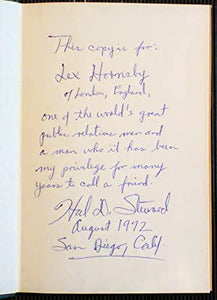 This copy is for:
Lex Hornsby
of London, England,
one of the world's great
public relations men and
a man who it has been
my privilege for many
years to call a friend.
Hal D. Steward
August 1972
San Diego, Calif.